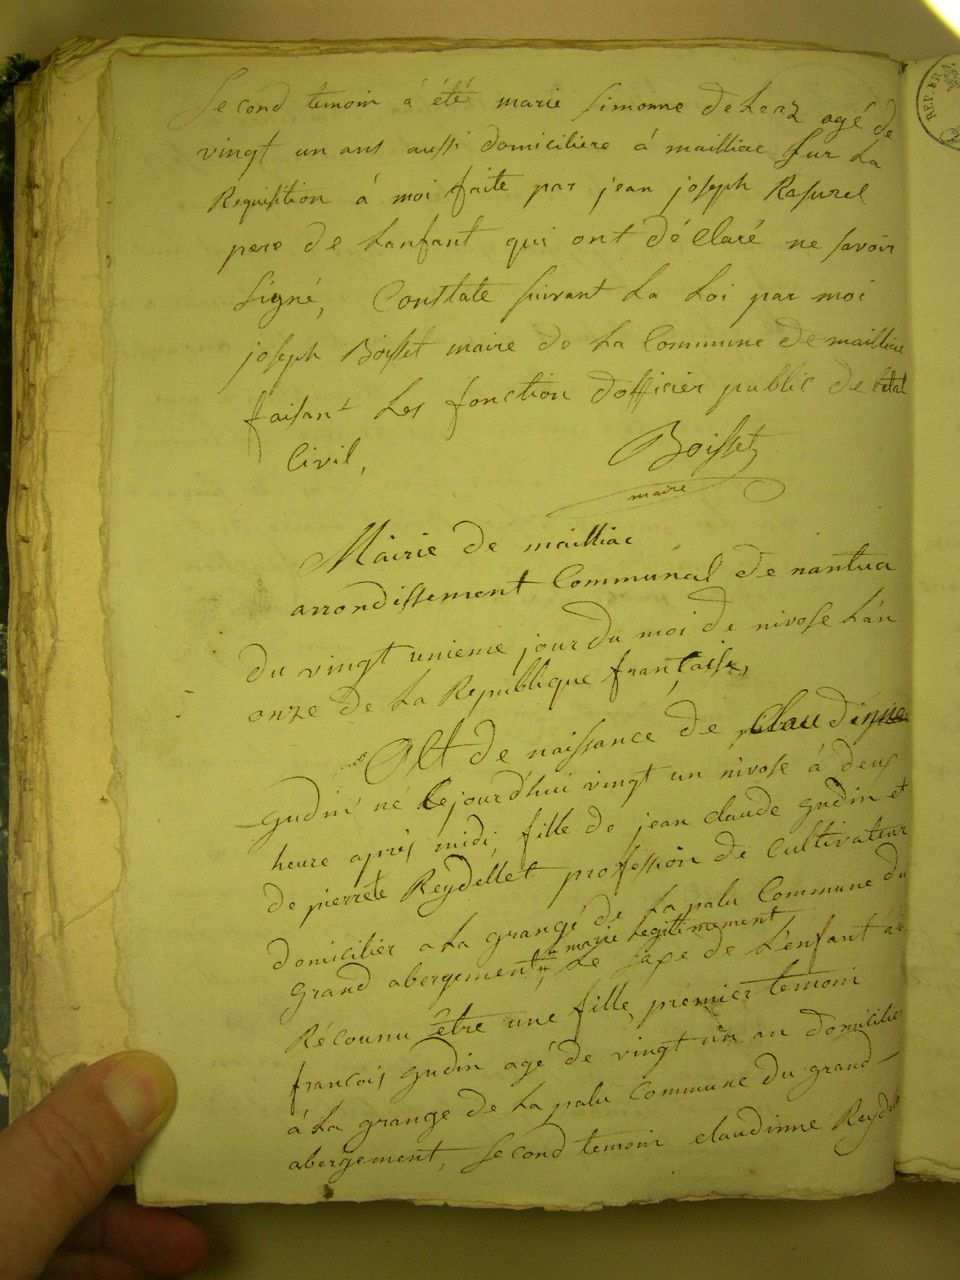 Second temoin à été marie simonne deleaz agé de
vingt un ans aussi domiciliere á mailliac sur La
Requisition á moi faite par jean joseph Rasurel
pere de Lanfant qui ont déClaré ne savoir
signé, Constate suivant La Loi par moi
joseph Boisset maire de La Commune de mailliac
faisant Les fonction dofficier public de létat
Civil,
Boisset
maire
Mairie de mailliac
arrondissement Communal de nantua
du vingt unieme jour du moi de nivose Lán
onze de La Republique française,
Act de naissance de Claudine
gudin né Lejourdhui vingt un nivose à deux
heure aprés midi, fille de jean claude gudin et
de pierrete Reydellet proffession de Cultivateur
domicilier a La grangé de La palu Commune du
grand abergement, marié Legitimement Le saxe de L'enfant à
Réconnu être une fille, premier temoin
francois gudin agé de vingt un an domicilié
à La grange de La palu Commune du grand
abergement, second temoin claudinne Reydel
REP. FR